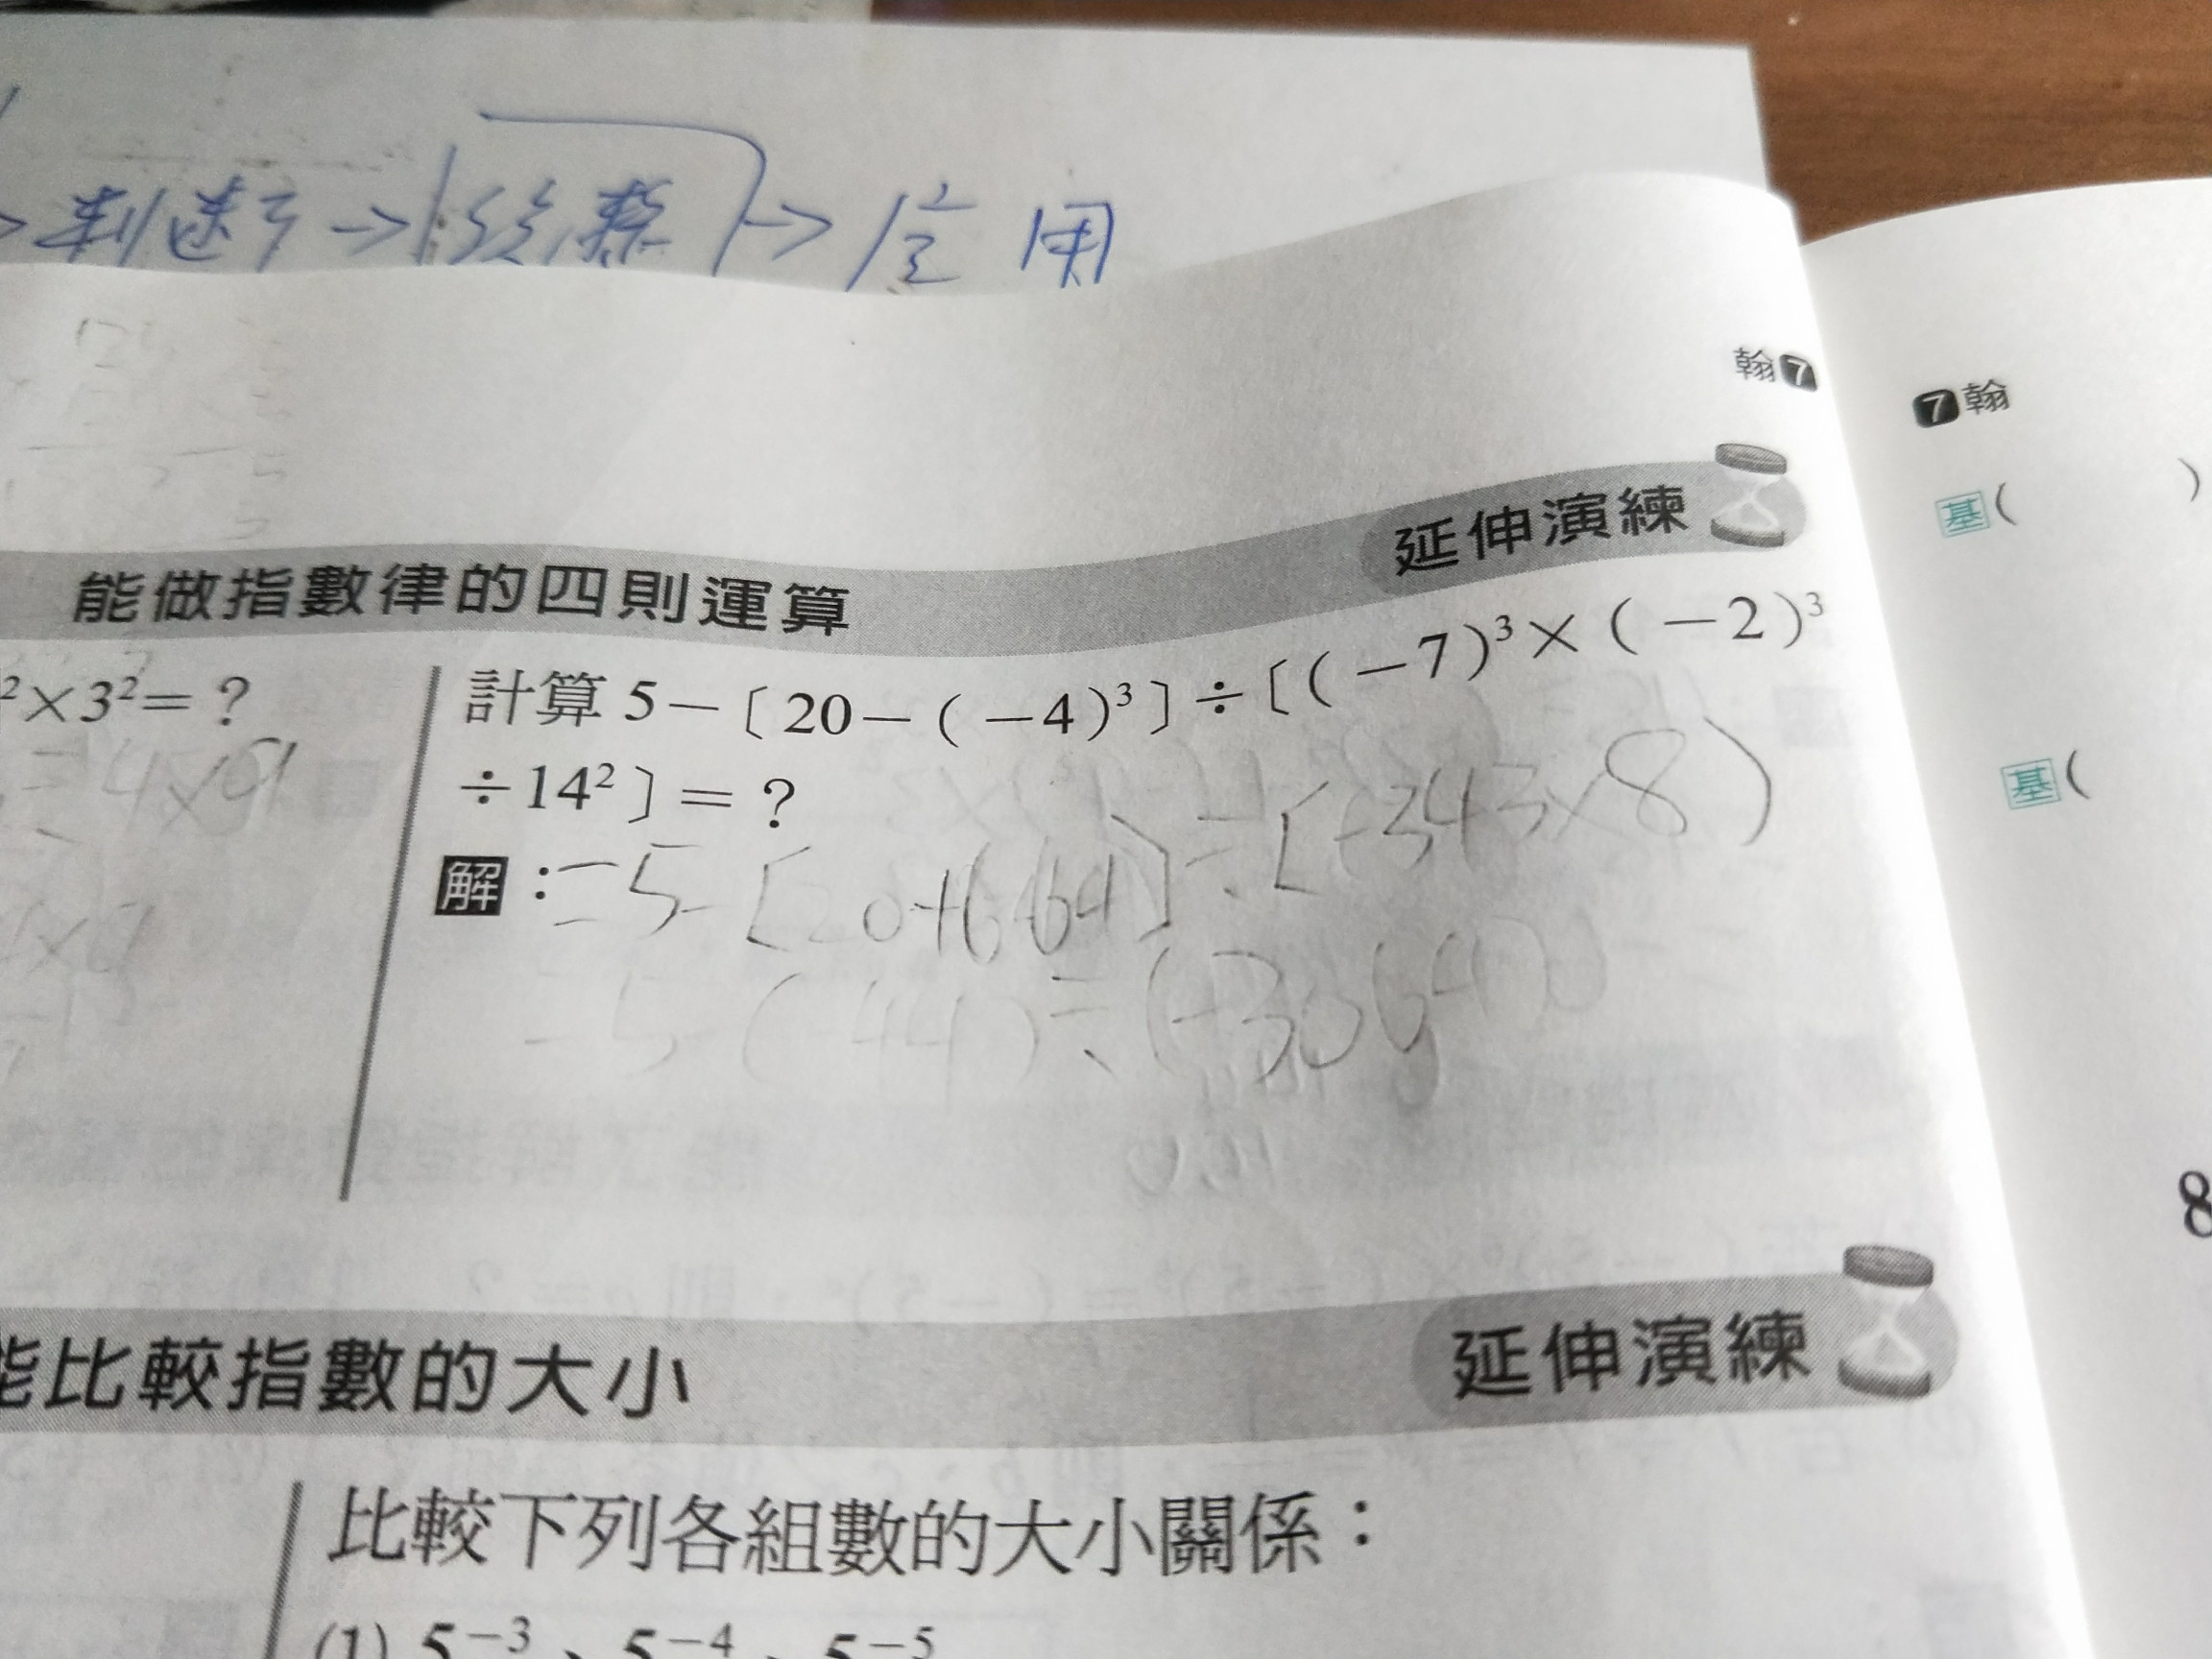 判斷 → 修整 → 应用
翰7
7翰
延伸演練
能做指數律的四則運算
基( )
²×3²=？
計算 5-〔20-(-4)³〕÷〔(-7)³×(-2)³
÷14²〕=？
4×9
基(
解：=5-[20+64]÷[-343×8)
5-(44)÷(-3064)
8
延伸演練
能比較指數的大小
比較下列各組數的大小關係：
(1) 5⁻³、5⁻⁴、5⁻⁵